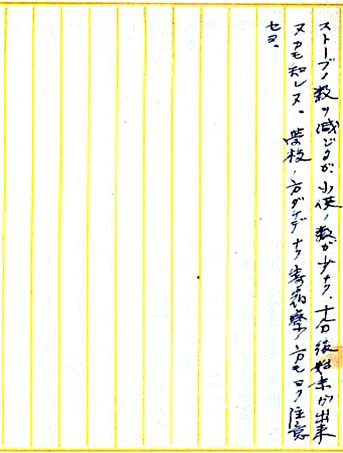 ストーブノ数ヲ減ジタガ小使ノ数ガ少ナク、十分後始末ガ出来
ヌカモ知レヌ。学校ノ方ダケデナク寄宿寮ノ方モヨク注意
セヨ。